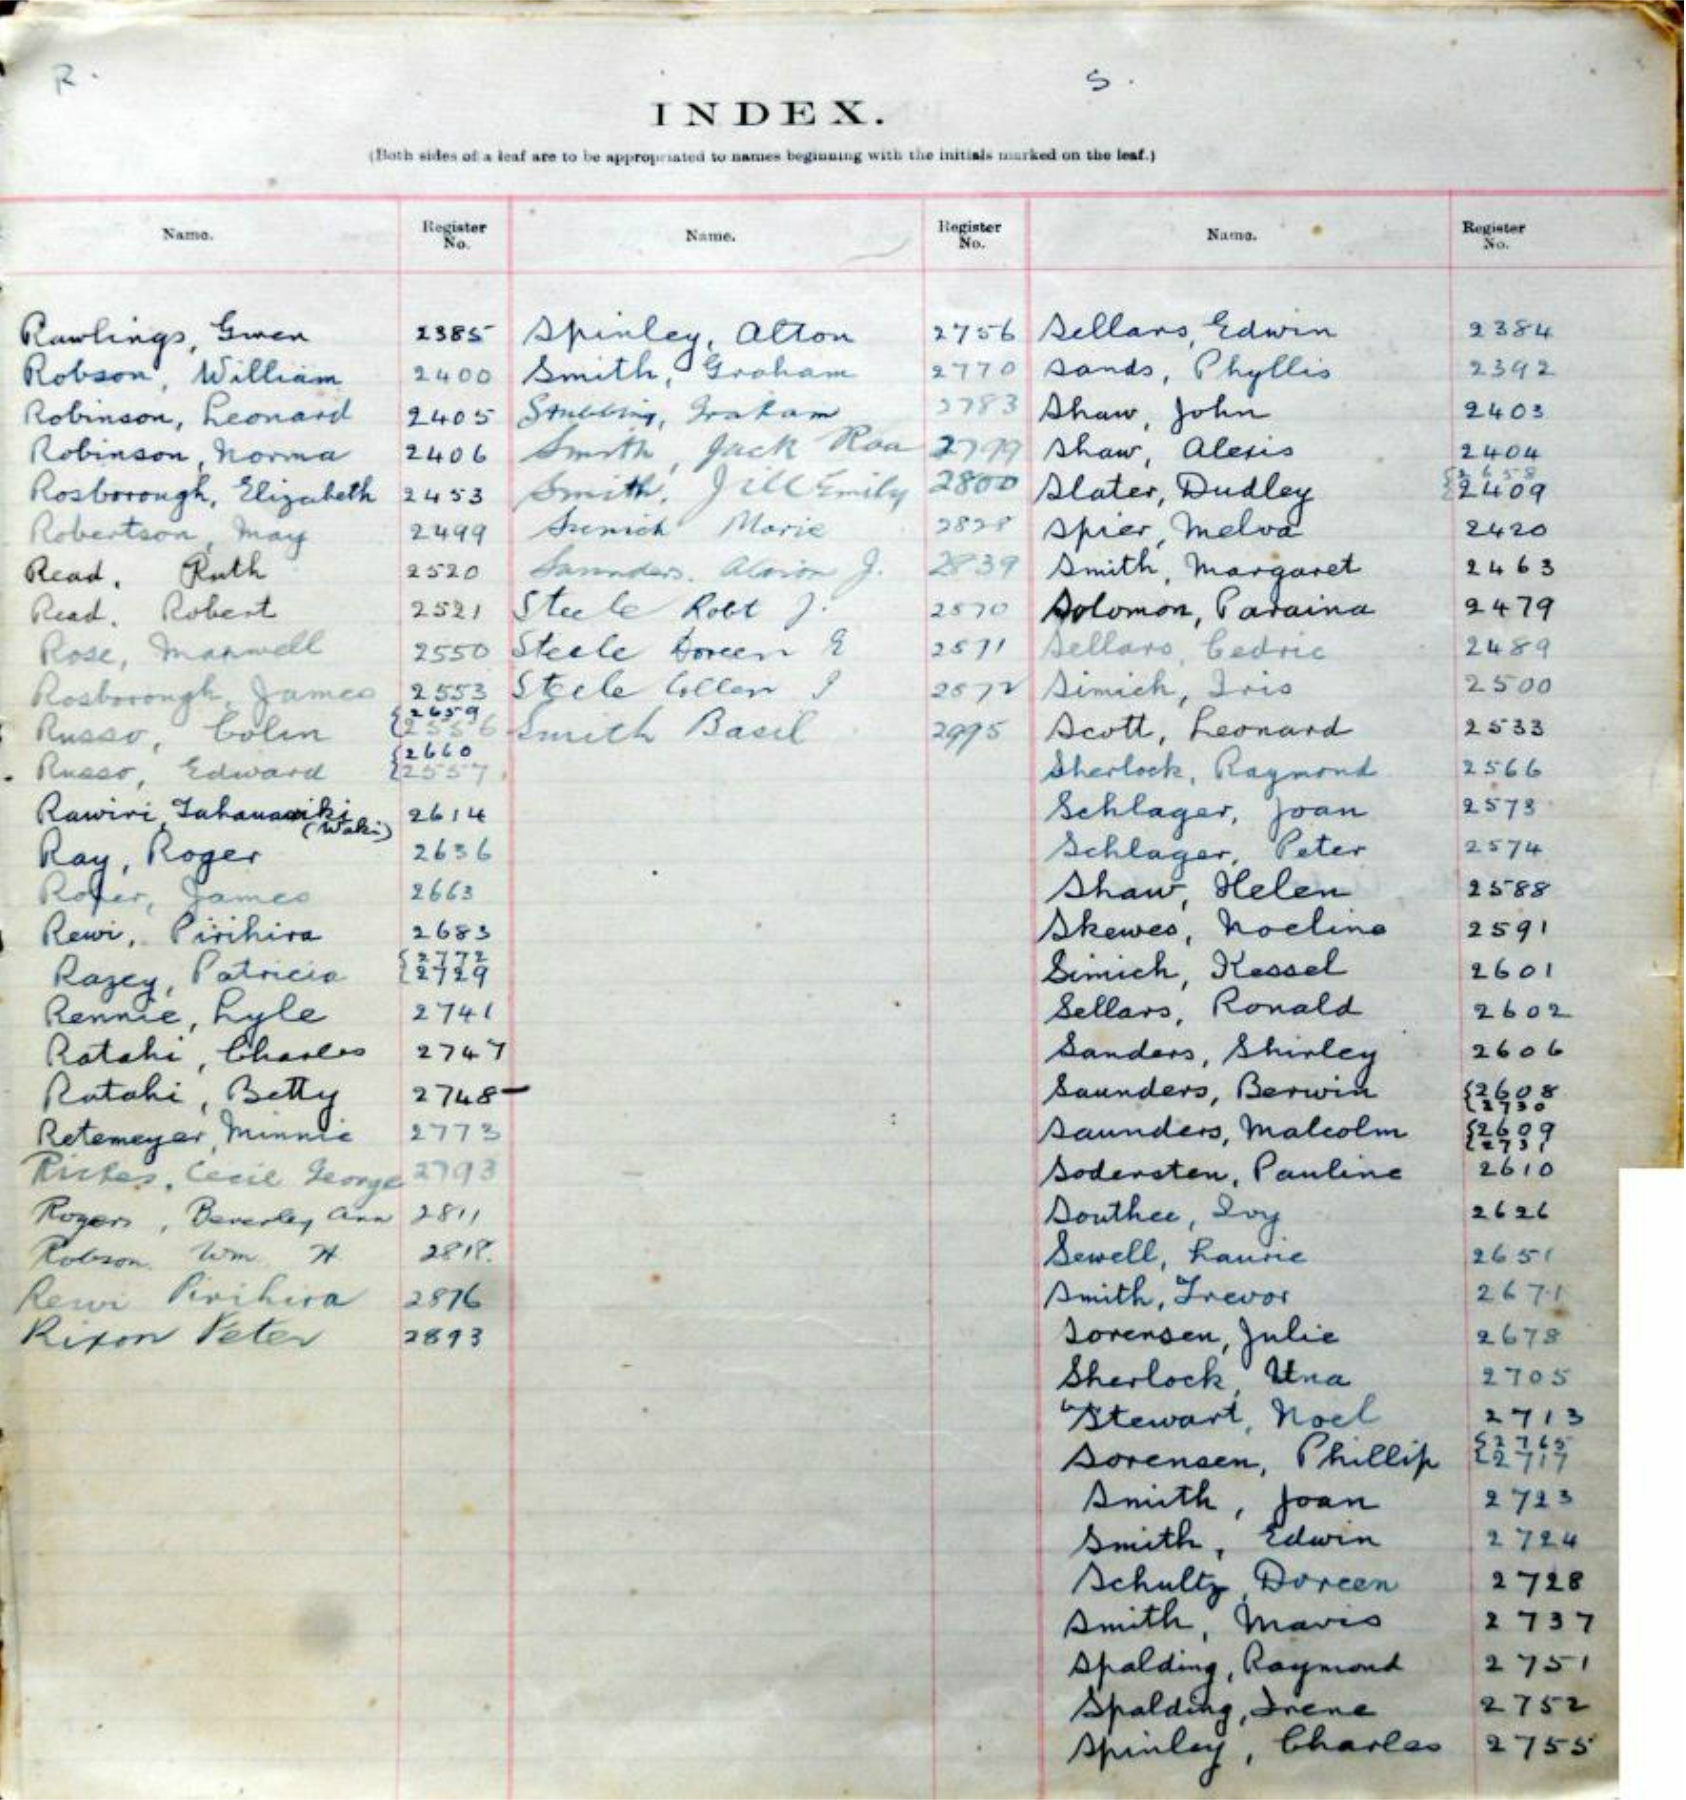 R.
S.
INDEX.
(Both sides of a leaf are to be appropriated to names beginning with the initials marked on the leaf.)
Name.
Register No.
Rawlings, Gwen 2385
Robson, William 2400
Robinson, Leonard 2405
Robinson, Norma 2406
Rosborough, Elizabeth 2453
Robertson, May 2499
Read, Ruth 2520
Read, Robert 2521
Rose, Maxwell 2550
Rosborough, James 2553
Russo, Colin {2659
{2556
Russo, Edward {2660
{2557
Rawiri, 2614
(Waki)
Ray, Roger 2636
Roper, James 2663
Rewi, Pirihira 2683
Razey, Patricia {2772
{2729
Rennie, Lyle 2741
Ratahi, Charles 2747
Ratahi, Betty 2748
Retemeyer, Minnie 2773
Riches, Cecil George 2793
Rogers, Beverley Ann 2811
Robson Wm H. 2818.
Rewi Pirihira 2876
Rixon Peter 2893
Name.
Register No.
Spinley, Alton 2756
Smith, Graham 2770
Stubbing, Graham 2783
Smith, Jack Roa 2799
Smith, Jill Emily 2800
Marie
Saunders, J. 2839
Steele Robt J.
Steele Doreen E
Steele
Smith Basil 2995
Name.
Register No.
Sellars, Edwin 2384
Sands, Phyllis 2392
Shaw, John 2403
Shaw, Alexis 2404
Slater, Dudley {2658
{2409
Spier, Melva 2420
Smith, Margaret 2463
Solomon, Paraina 2479
Sellars, Cedric 2489
Simich, Iris 2500
Scott, Leonard 2533
Sherlock, Raymond 2566
Schlager, Joan 2573
Schlager, Peter 2574
Shaw, Helen 2588
Skewes, Noeline 2591
Simich, Kessel 2601
Sellars, Ronald 2602
Sanders, Shirley 2606
Saunders, Berwin {2608
{2730
Saunders, Malcolm {2609
{2731
Sodersten, Pauline 2610
Southee, Ivy 2626
Sewell, Laurie 2651
Smith, Trevor 2671
Sorensen, Julie 2678
Sherlock, Una 2705
Stewart, Noel 2713
Sorensen, Phillip {2765
{2717
Smith, Joan 2723
Smith, Edwin 2724
Schultz, Doreen 2728
Smith, Mavis 2737
Spalding, Raymond 2751
Spalding, Irene 2752
Spinley, Charles 2755